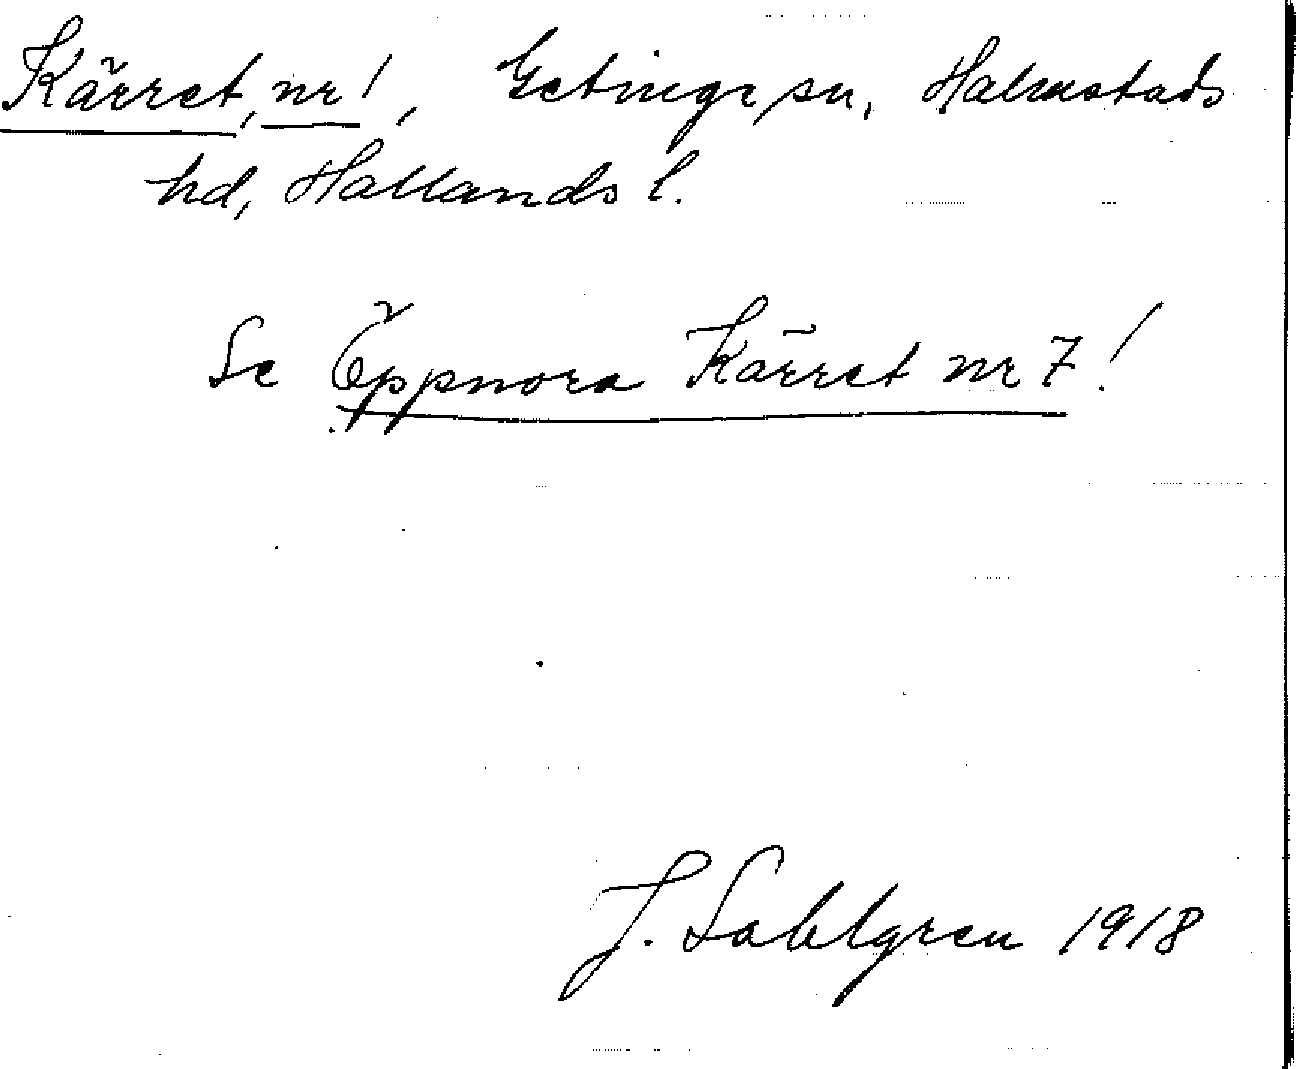 Kärret, nr 1, Getinge sn, Halmstads
hd, Hallands l.
Se Öppnora Kärret nr 7!
J. Sahlgren 1918